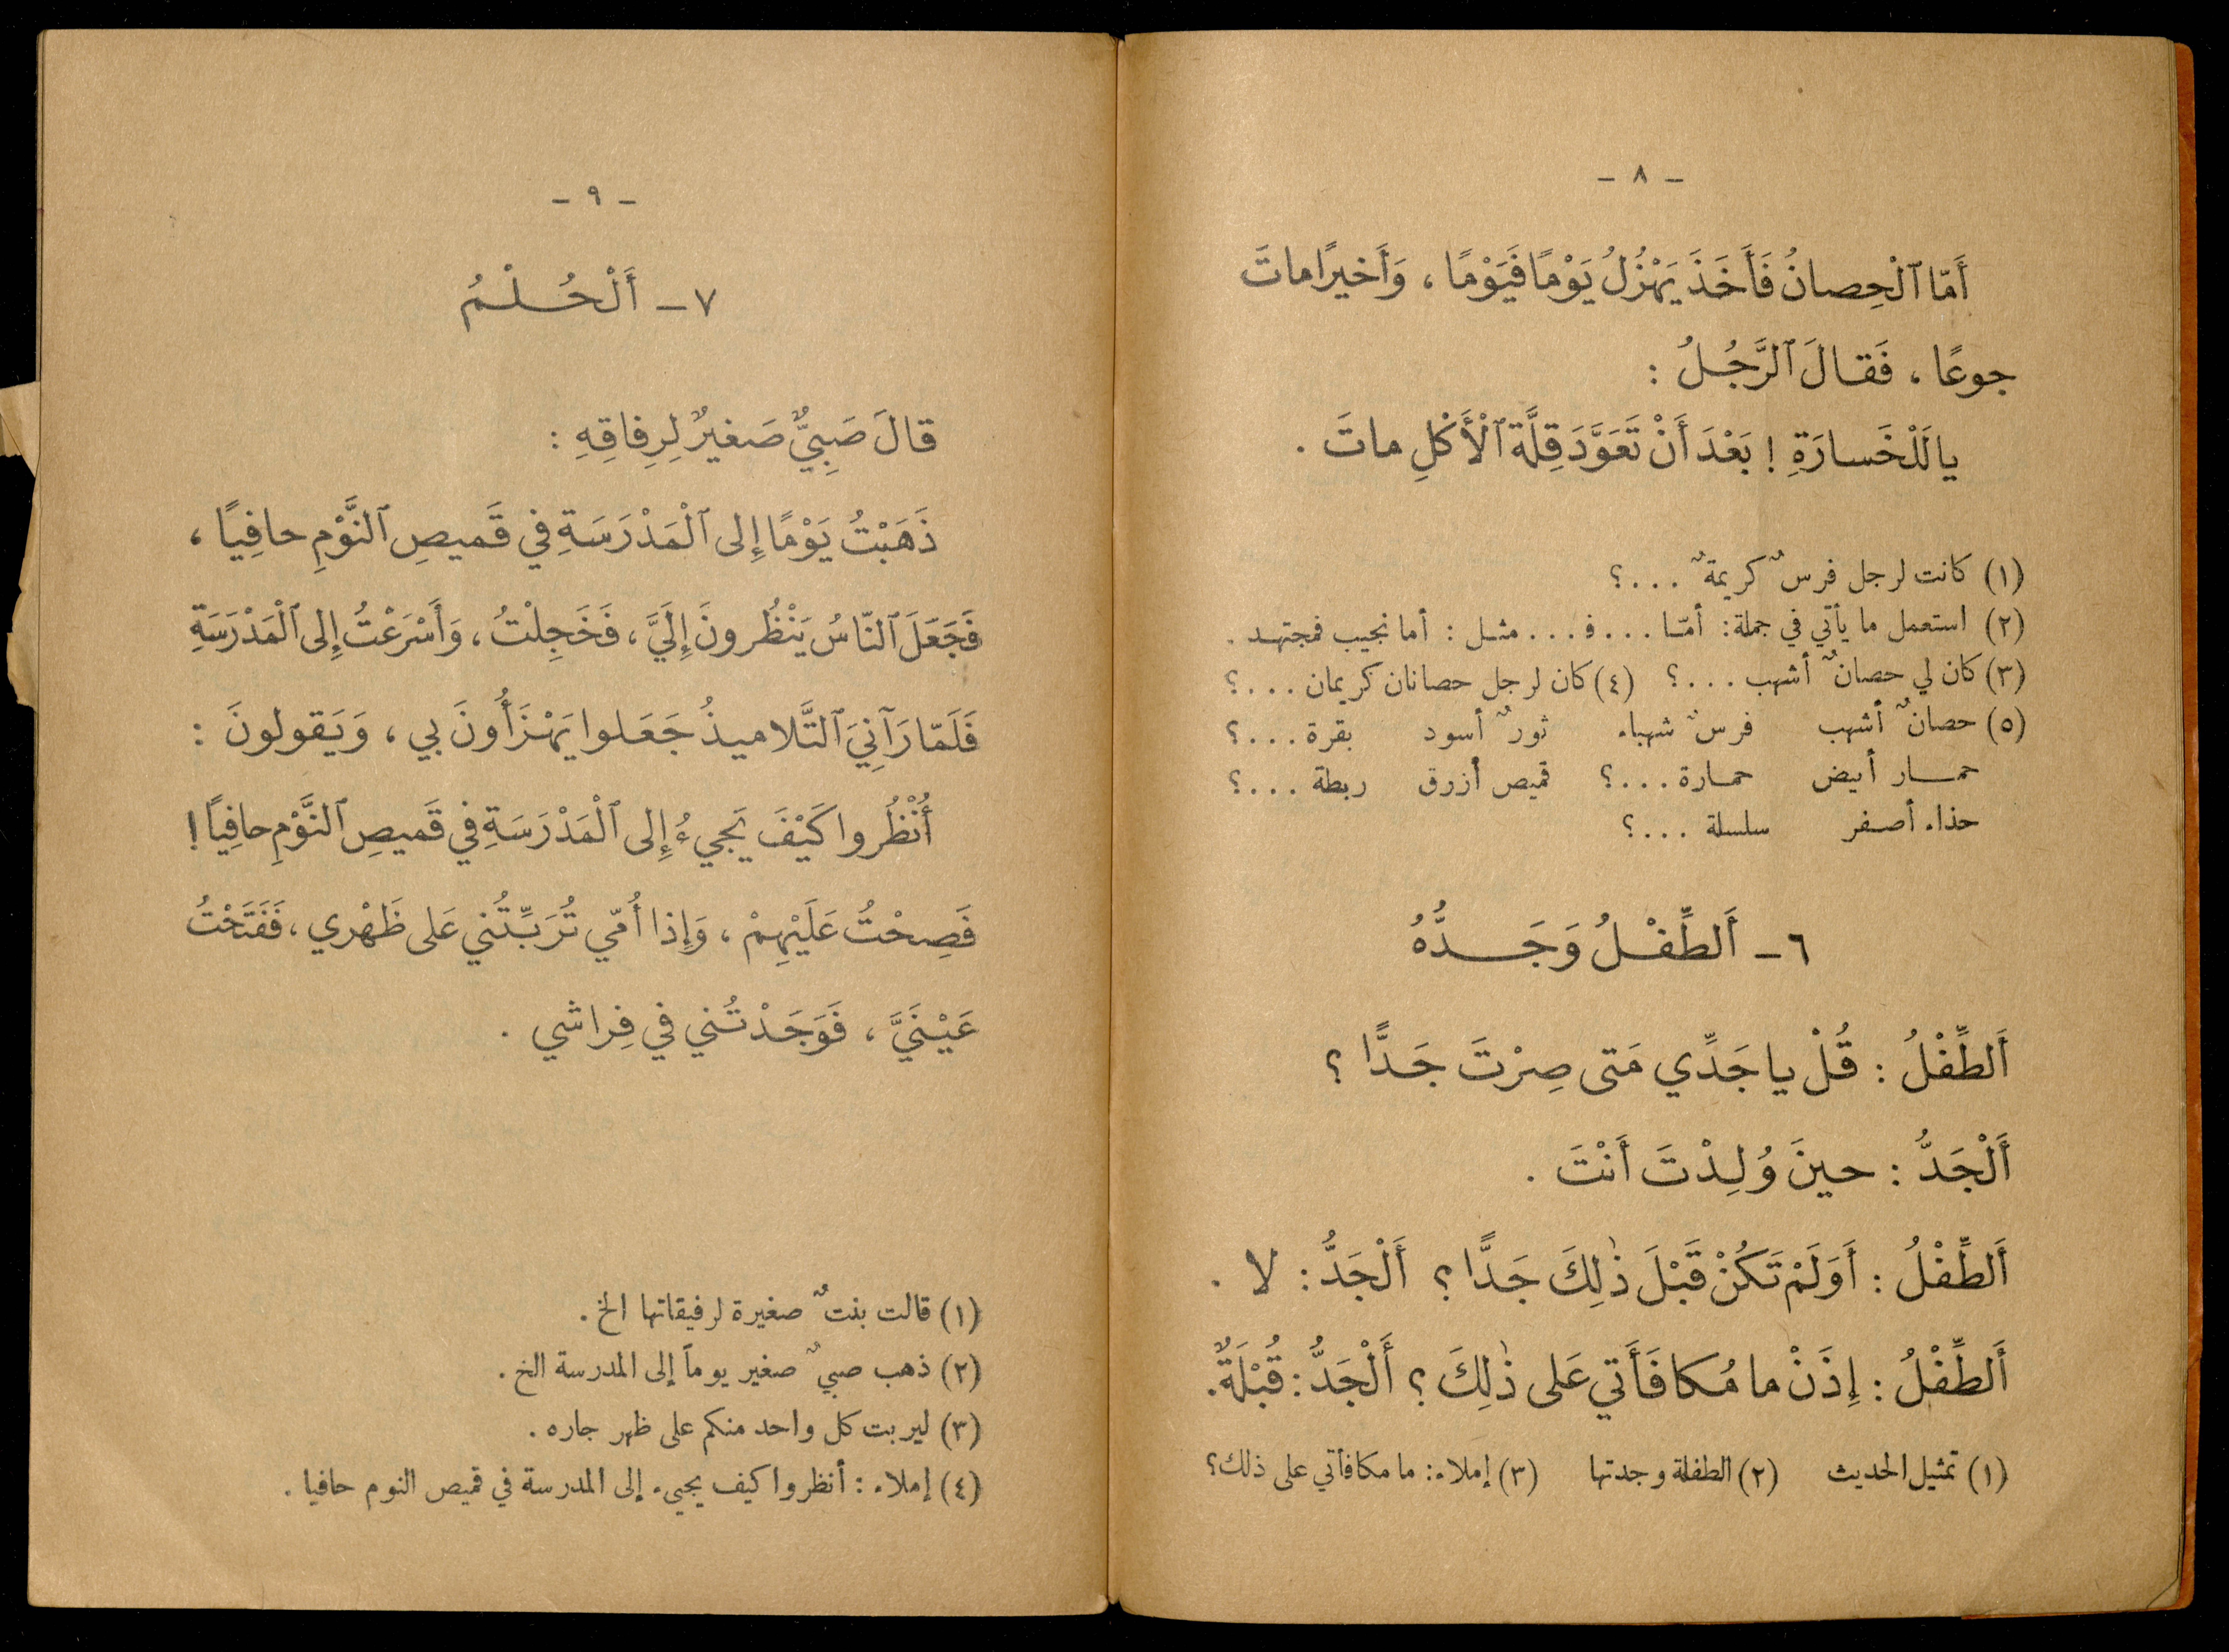 - ٨ -
أَمّا ٱلْحِصانُ فَأَخَذَ يَهْزُلُ يَوْمًا فَيَوْمًا ، وَأَخيرًا ماتَ
جوعًا ، فَقـالَ ٱلرَّجُـلُ :
يا لَلْخَسارَةِ ! بَعْدَ أَنْ تَعَوَّدَ قِلَّةَ ٱلْأَكْلِ ماتَ .
(١) كانت لرجل فرسٌ كريمةٌ ...؟
(٢) استعمل ما يأتي في جملة: أمّـا ... فـ ... مثـل : أما نجيب فمجتهـد .
(٣) كان لي حصانٌ أشهب ...؟ (٤) كان لرجل حصانان كريمان ...؟
(٥) حصانٌ أشهب فرسٌ شهباء ثورٌ أسود بقرة ...؟
حمـــار أبيض حمـارة ...؟ قميص أزرق ربطة ...؟
حذاء أصـفر سلسلة ...؟
٦ - أَلطِّفْـلُ وَجَـــدُّهُ
أَلطِّفْلُ : قُلْ يا جَدِّي مَتى صِرْتَ جَـدًّا ؟
أَلْجَدُّ : حينَ وُلِـدْتَ أَنْتَ .
أَلطِّفْلُ : أَوَلَمْ تَكُنْ قَبْلَ ذٰلِكَ جَـدًّا ؟ أَلْجَدُّ : لا .
أَلطِّفْلُ : إِذَنْ ما مُكافَأَتي عَلى ذٰلِكَ ؟ أَلْجَدُّ : قُبْلَةٌ .
(١) تمثيل الحديث (٢) الطفلة وجدتها (٣) إملاء: ما مكافأتي على ذلك؟
- ٩ -
٧ - أَلْحُـــلْـمُ
قالَ صَبِيٌّ صَغيرٌ لِرِفاقِهِ :
ذَهَبْتُ يَوْمًا إِلى ٱلْمَدْرَسَةِ في قَميصِ ٱلنَّوْمِ حافِيًا ،
فَجَعَلَ ٱلنّاسُ يَنْظُرونَ إِلَيَّ ، فَخَجِلْتُ ، وَأَسْرَعْتُ إِلى ٱلْمَدْرَسَةِ
فَلَمّا رَآنِيَ ٱلتَّلاميـذُ جَعَـلوا يَهْـزَأُونَ بي ، وَيَقولونَ :
أُنْظُروا كَيْفَ يَجيءُ إِلى ٱلْمَدْرَسَةِ في قَميصِ ٱلنَّوْمِ حافِيًا !
فَصِحْتُ عَلَيْهِمْ ، وَإِذا أُمّي تُرَبِّتُني عَلى ظَهْري ، فَفَتَحْتُ
عَيْـنَيَّ ، فَوَجَـدْتُـني في فِراشي .
(١) قالت بنتٌ صغيرة لرفيقاتها الخ .
(٢) ذهب صبيٌ صغير يوماً إلى المدرسة الخ .
(٣) ليربت كل واحد منكم على ظهر جاره .
(٤) إملاء : أنظروا كيف يجيء إلى المدرسة في قميص النوم حافيا .